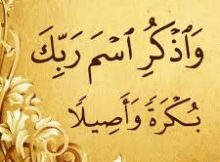 وَٱذۡكُرِ ٱسۡمَ رَبِّكَ
بُكۡرَةٗ وَأَصِيلٗا